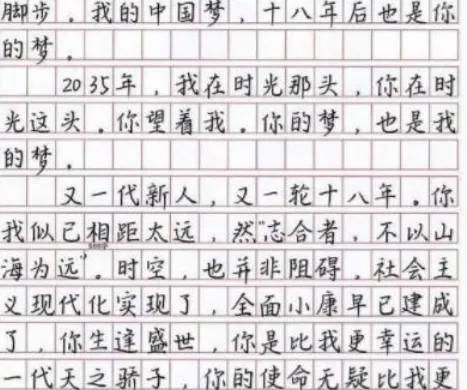 脚步。我的中国梦，十八年后也是你
的梦。
2035年，我在时光那头，你在时
光这头。你望着我。你的梦，也是我
的梦。
又一代新人，又一轮十八年。你
我似已相距太远，然“志合者，不以山
海为远”。时空，也并非阻碍，社会主
义现代化实现了，全面小康早已建成
了，你生逢盛世，你是比我更幸运的
一代天之骄子，你的使命无疑比我更